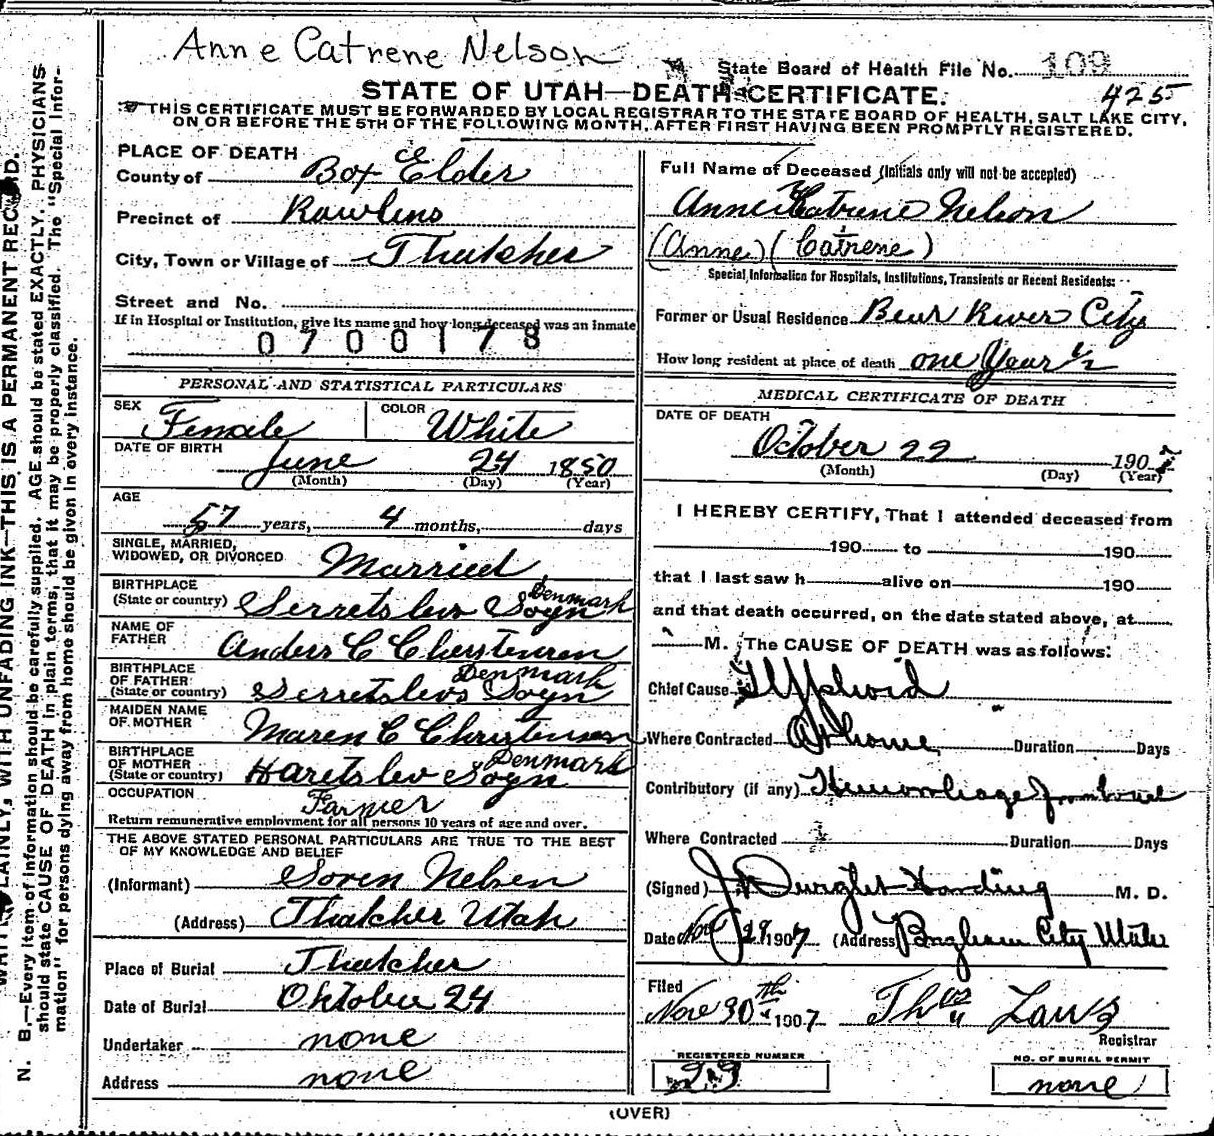 Anne Catrene Nelson
State Board of Health File No. 109
STATE OF UTAH—DEATH CERTIFICATE.
425
THIS CERTIFICATE MUST BE FORWARDED BY LOCAL REGISTRAR TO THE STATE BOARD OF HEALTH, SALT LAKE CITY,
ON OR BEFORE THE 5TH OF THE FOLLOWING MONTH, AFTER FIRST HAVING BEEN PROMPTLY REGISTERED.
PLACE OF DEATH
County of Box Elder
Precinct of Rawlins
City, Town or Village of Thatcher
Street and No.
If in Hospital or Institution, give its name and how long deceased was an inmate
0700178
PERSONAL AND STATISTICAL PARTICULARS
SEX Female COLOR White
DATE OF BIRTH
June 24 1850
(Month) (Day) (Year)
AGE
57 years, 4 months, days
SINGLE, MARRIED,
WIDOWED, OR DIVORCED Married
BIRTHPLACE
(State or country) Serretslev Sogn Denmark
NAME OF
FATHER Anders C Christensen
BIRTHPLACE
OF FATHER
(State or country) Serretslevs Sogn Denmark
MAIDEN NAME
OF MOTHER Maren C Christensen
BIRTHPLACE
OF MOTHER
(State or country) Haretslev Sogn Denmark
OCCUPATION Farmer
Return remunerative employment for all persons 10 years of age and over.
THE ABOVE STATED PERSONAL PARTICULARS ARE TRUE TO THE BEST
OF MY KNOWLEDGE AND BELIEF
(Informant) Soren Nelsen
(Address) Thatcher Utah
Place of Burial Thatcher
Date of Burial Oktober 24
Undertaker none
Address none
Full Name of Deceased (Initials only will not be accepted)
Anne Katrene Nelson
(Anne) (Catrene)
Special Information for Hospitals, Institutions, Transients or Recent Residents:
Former or Usual Residence Bear River City
How long resident at place of death one Year 1/2
MEDICAL CERTIFICATE OF DEATH
DATE OF DEATH
October 22 1907
(Month) (Day) (Year)
I HEREBY CERTIFY, That I attended deceased from
190 to 190
that I last saw h alive on 190
and that death occurred, on the date stated above, at
M. The CAUSE OF DEATH was as follows:
Chief Cause Typhoid
Where Contracted At home Duration Days
Contributory (if any) Hemorrhage from bowel
Where Contracted Duration Days
(Signed) Dwight Harding M. D.
Date Nov 28 1907 (Address) Brigham City Utah
Filed
Nov 30th 1907 Thos Laws
Registrar
REGISTERED NUMBER
NO. OF BURIAL PERMIT
none
(OVER)
N. B.—Every item of information should be carefully supplied. AGE should be stated EXACTLY. PHYSICIANS
should state CAUSE OF DEATH in plain terms, that it may be properly classified. The "Special Infor-
mation" for persons dying away from home should be given in every instance.
PLAINLY, WITH UNFADING INK—THIS IS A PERMANENT RECORD.